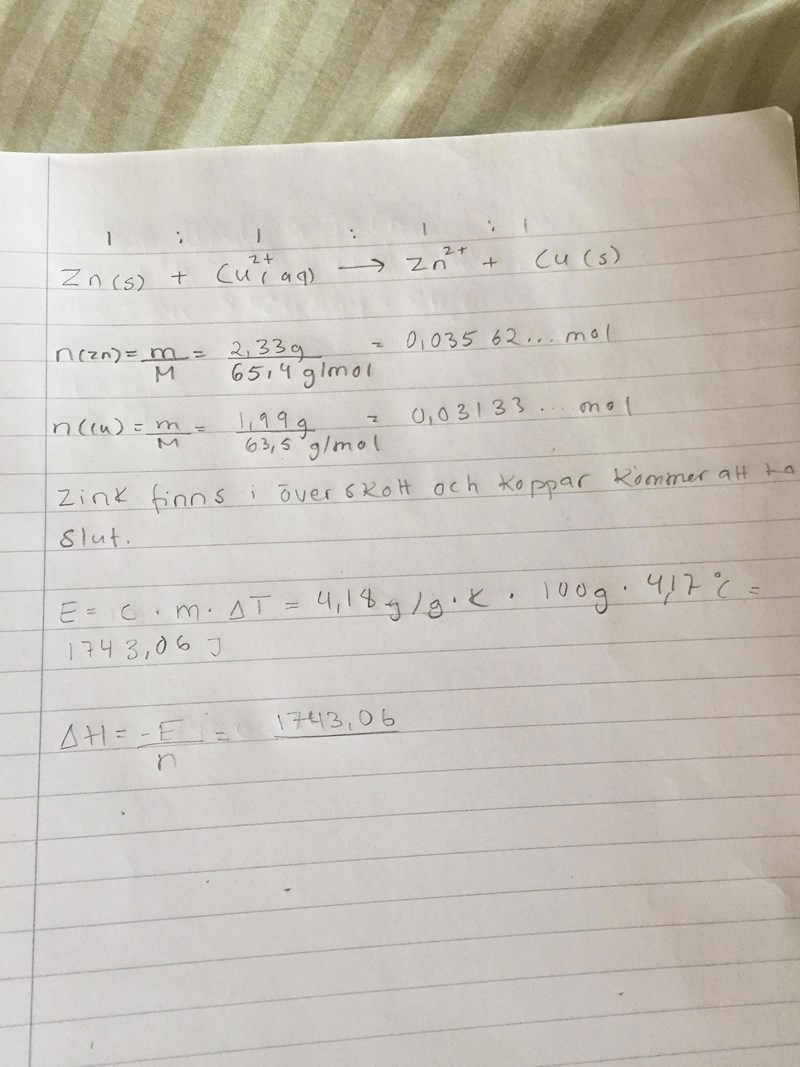 1 : 1 : 1 : 1
Zn(s) + Cu²⁺(aq) → Zn²⁺ + Cu(s)
n(zn) = m/M = 2,33g / 65,4 g/mol = 0,035 62... mol
n(Cu) = m/M = 1,99g / 63,5 g/mol = 0,03133... mol
Zink finns i överskott och koppar kommer att ta
slut.
E = c · m · ΔT = 4,18 g/g·K · 100g · 4,17°C =
1743,06 J
ΔH = -E/n = 1743,06